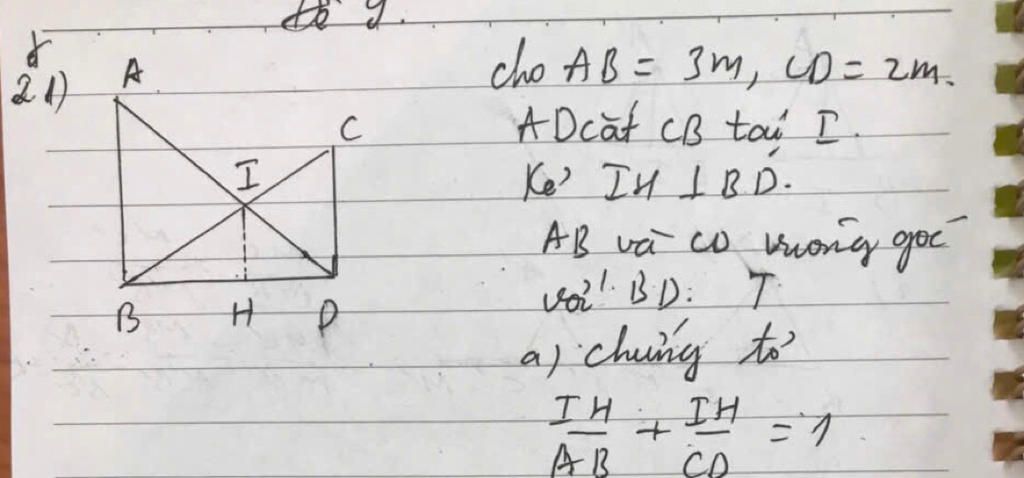 21) A
cho AB = 3m, CD = 2m.
C
AD cắt CB tại I.
I
Kẻ IH ⊥ BD.
AB và CD vuông góc
B H D
với BD.
a) chứng tỏ
IH/AB + IH/CD = 1